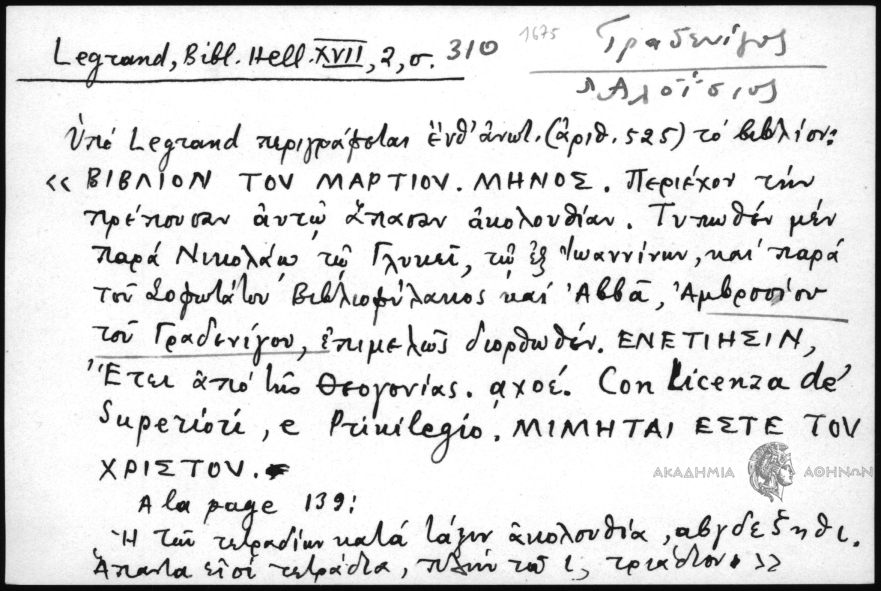 Legrand, Bibl. Hell. XVII, 2, σ. 310 1675 Γραδενίγος
Ἀλοΐσιος
Ὑπό Legrand περιγράφεται ἔνθ' ἀνωτ. (ἀριθ. 525) τό βιβλίον:
«ΒΙΒΛΙΟΝ ΤΟΥ ΜΑΡΤΙΟΥ. ΜΗΝΟΣ. Περιέχον τήν
πρέπουσαν ἀυτῷ ἅπασαν ἀκολουθίαν. Τυπωθέν μέν
παρά Νικολάῳ τῷ Γλυκεῖ, τῷ ἐξ Ἰωαννίνων, καί παρά
τοῦ Σοφωτάτου Βιβλιοφύλακος καί Ἀββᾶ, Ἀμβροσίου
τοῦ Γραδενίγου, ἐπιμελῶς διορθωθέν. ΕΝΕΤΙΗΣΙΝ,
Ἔτει ἀπό τῆς Θεογονίας. αχοέ. Con Licenza de'
Superiori, e Privilegio. ΜΙΜΗΤΑΙ ΕΣΤΕ ΤΟΥ
ΧΡΙΣΤΟΥ.
ΑΚΑΔΗΜΙΑ ΑΘΗΝΩΝ
A la page 139:
Ἡ τῶν τετραδίων κατά τάξιν ἀκολουθία, αβγδεζηθι.
Ἅπαντα εἰσί τετράδια, πλήν τοῦ ι, τριάδιον.»